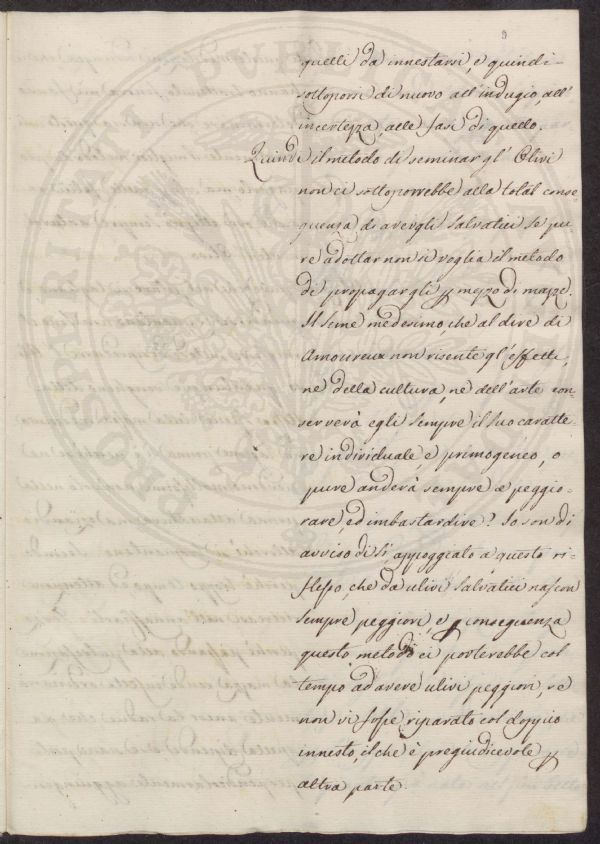 9
quelli da innestarsi, e quindi
sottoporsi di nuovo all'indugio, all'
incertezza, alle fasi di quello.
Quindi il metodo di seminar gl'Olivi
non ci sottoporrebbe alla total conse-
guenza di avergli salvatici se pu
re adottar non si voglia il metodo
di propagargli p mezzo di mazze.
Il seme medesimo, che al dire di
Amoureux non risente gl'effetti,
ne della cultura, ne dell'arte con-
serverà egli sempre il suo caratte
re individuale, e primogeneo, o
pure anderà sempre a peggio-
rare, ed imbastardire? Io son di
avviso di sì appoggiato a questo ri-
flesso, che da ulivi salvatici nascon
sempre peggiori, e p conseguenza
questo metodo ci porterebbe col
tempo ad avere ulivi peggiori, se
non vi fosse riparato col doppio
innesto, il che è pregiudicevole p
altra parte.